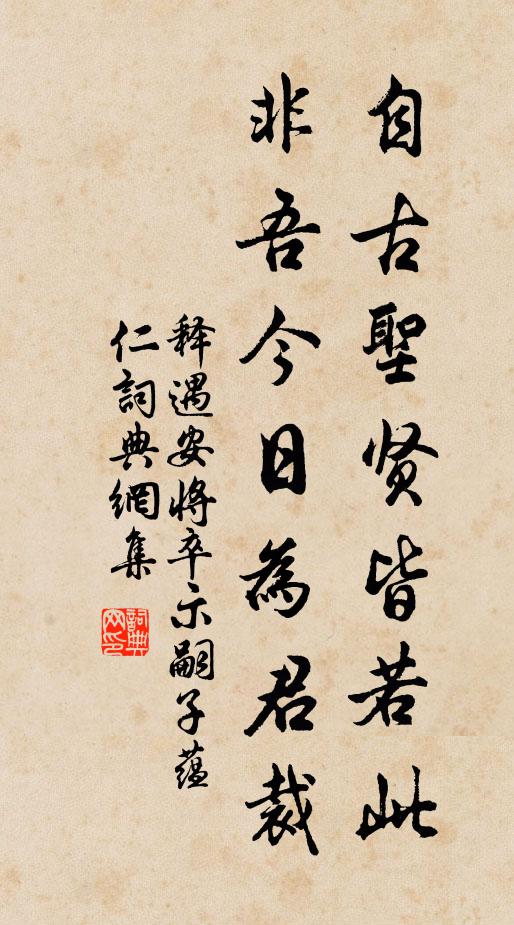 自古聖贤皆若此
非吾今日為君裁
释遇安将卒示嗣子蕴
仁詞典網集
詞典網印